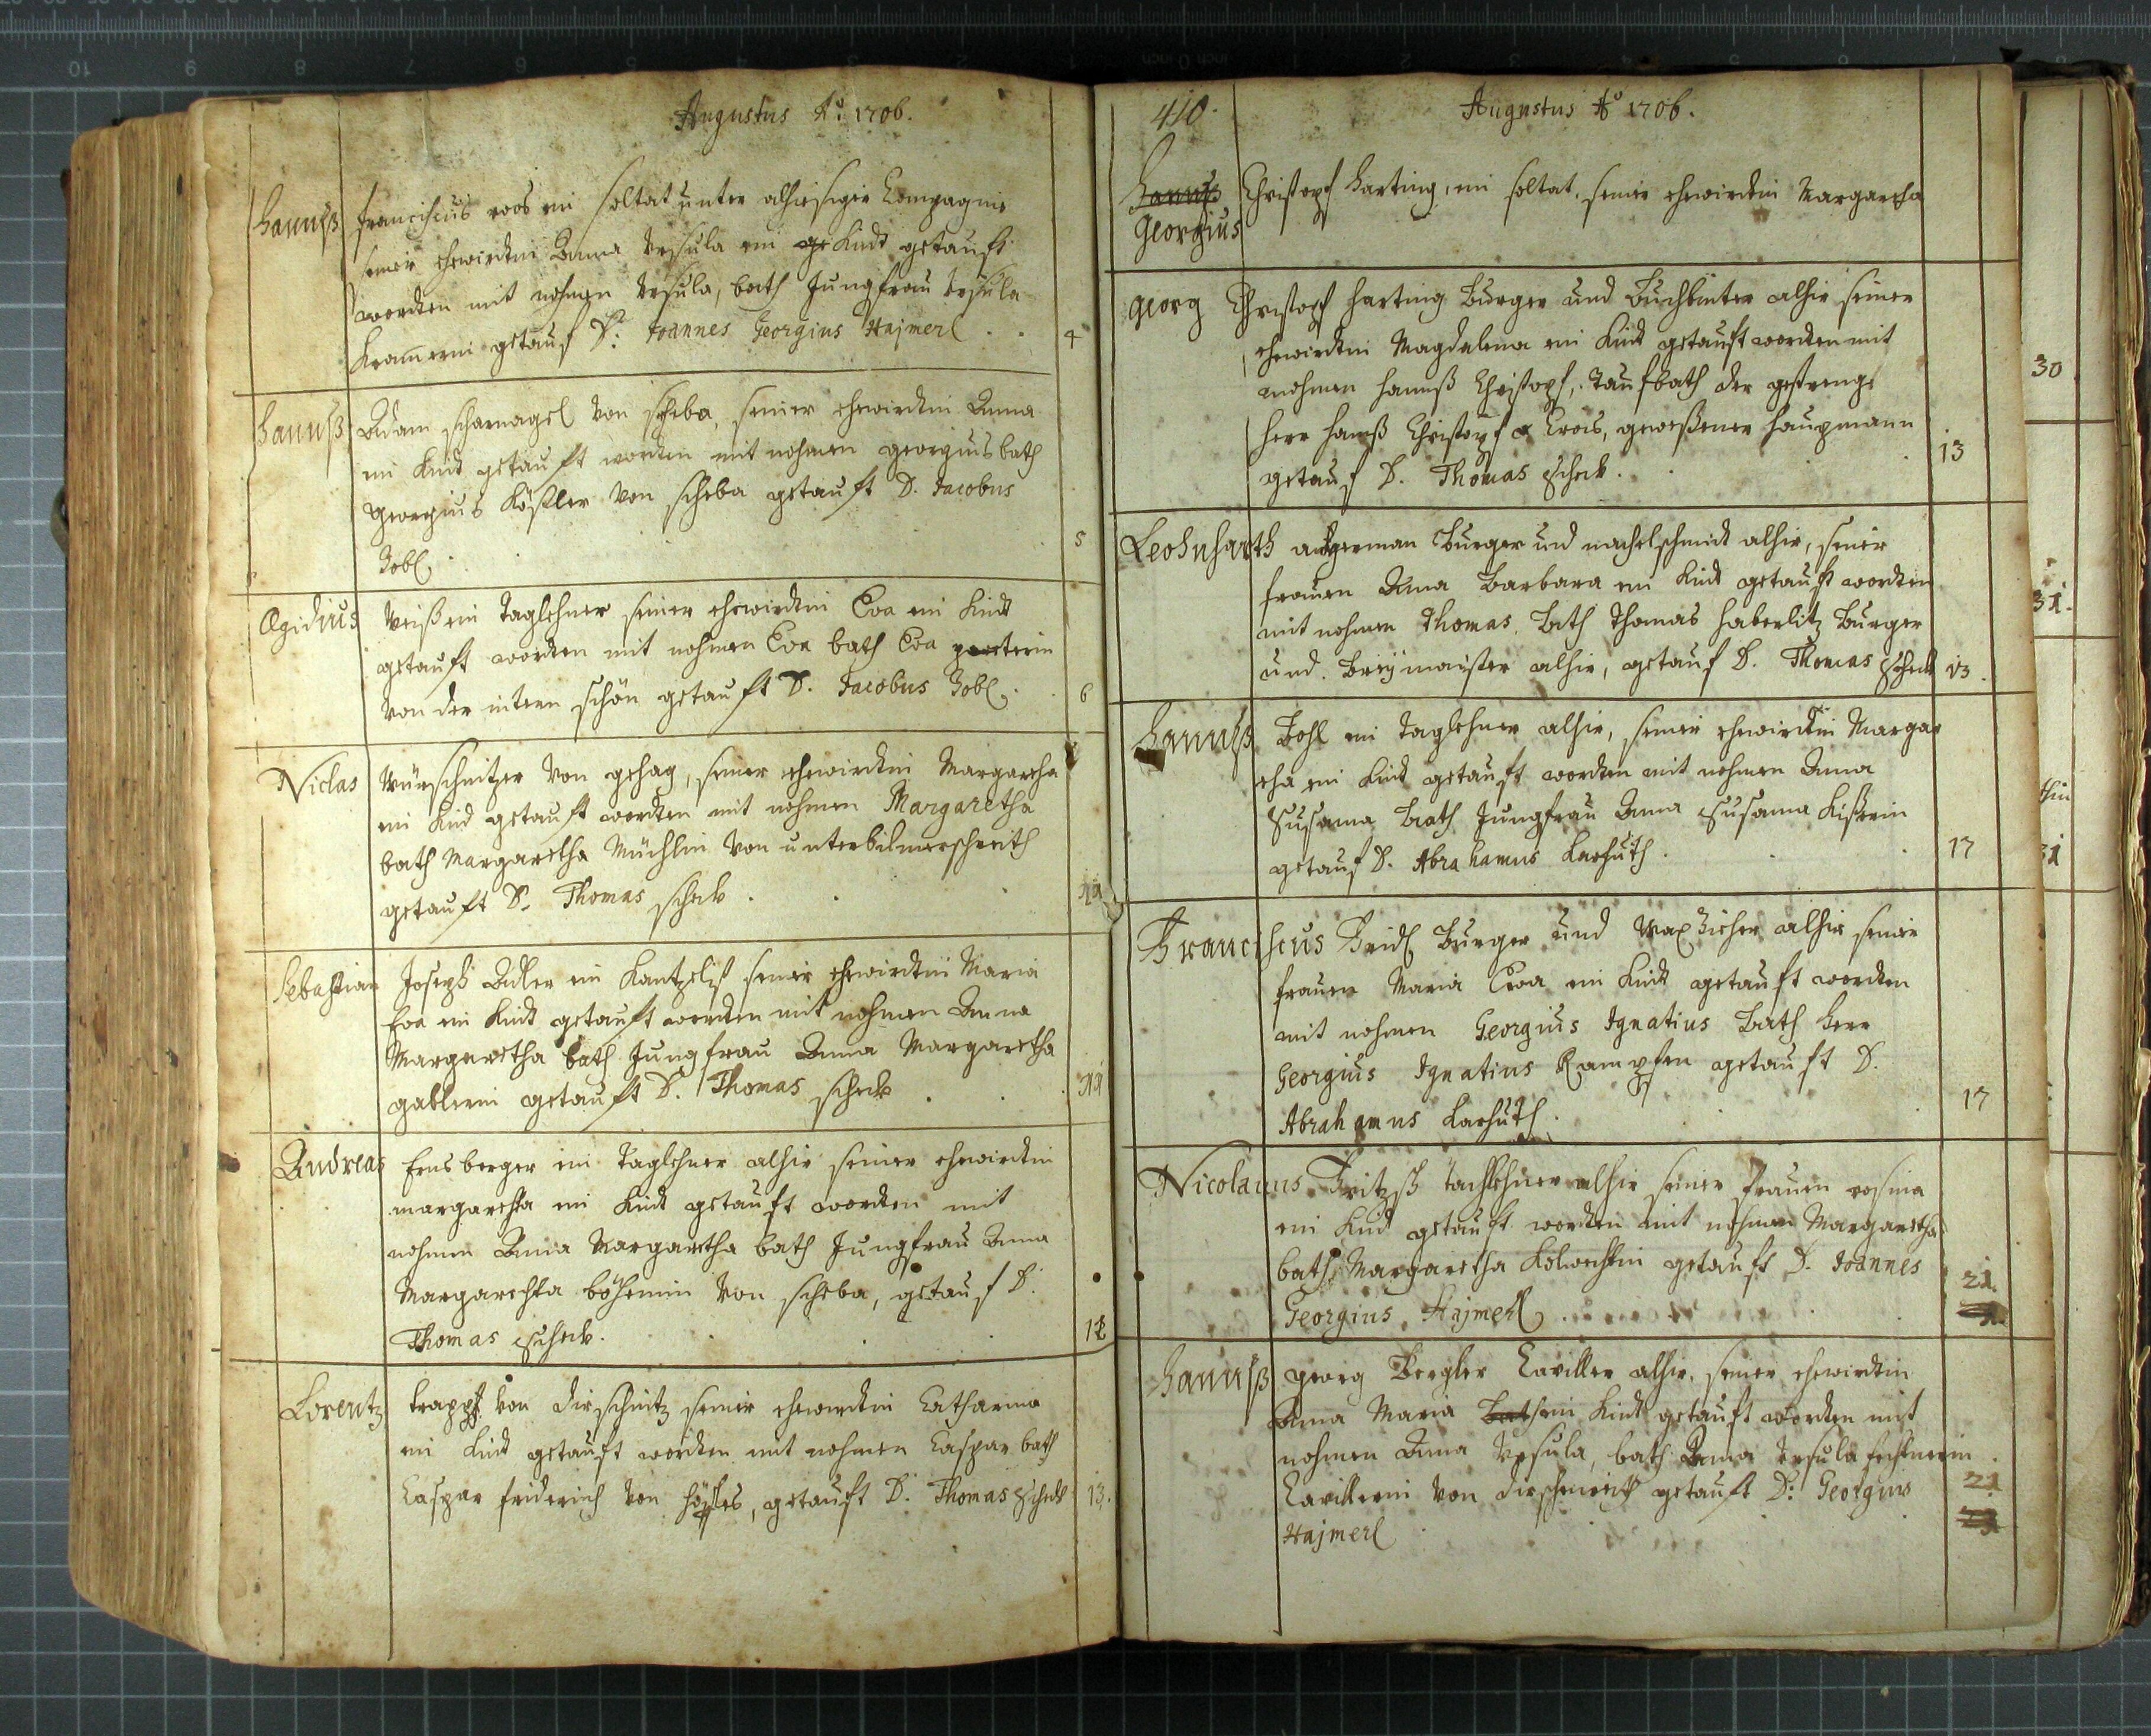 Augustus Aº: 1706.
Hannß franciscus roos ein soltat unter alhiesiger Compagnie
seiner ehewirdtin Anna Ursula ein Kindt getauft
wordten mit nohmen Ursula, bath Jungfrau Ursula
Kramerin getauf D: Joannes Georgius Hajmerl 4
Hannß Adam scharnagel von scheba, seiner ehewirdtin Anna
ein Kindt getauft wordten mit nohmen georgius bath
georgius Köstler von scheba getauft D. Jacobus
Zobl. 5
Ægidius Veiß ein Taglehner seiner ehewirdtin Eva ein Kindt
getauft wordten mit nohmen Eva bath Eva
von der intern schön getauft D. Jacobus Zobl. 6
Niclas Würschnitzer von gehag, seiner ehewirdtin Margaretha
ein Kind getauft wordten mit nohmen Margaretha
bath Margaretha Müchlin von unterbilmerschreith
getauft D. Thomas scheck. 11
Sebastian Joseph Adler ein Kantzelist seiner ehewirdtin Maria
Eva ein Kindt getauft wordten mit nohmen Anna
Margaretha bath Jungfrau Anna Margaretha
gablerin getauft D. Thomas scheck. 11
Andreas Ernsberger ein Taglehner alhie seiner ehewirdtin
margaretha ein Kindt getauft wordten mit
nohmen Anna Margaretha bath Jungfrau Anna
Margaretha böhemin von scheba, getauf D.
Thomas scheck. 12
Lorentz trapp von dirschnitz seiner ehewirdtin Catharina
ein Kindt getauft wordten mit nohmen Caspar bath
Caspar friderich von höfles, getauft D. Thomas scheck 13.
410. Augustus Aº 1706.
Hannß
Georgius Christoph Harting, ein soltat, seiner ehewirdtin Margaretha
georg Christoph Harting Burger und Buchbinter alhie seiner
ehewirdtin Magdalena ein Kindt getauft wordten mit
nohmen hannß Christoph, Taufbath der gestrenge
herr hanß Christoph Crois, geweßener haupmann
getauf D. Thomas scheck. 13
Leohnharth angerman Burger und nachelschmidt alhie, seiner
frauen Anna Barbara ein Kindt getauft wordten
mit nohmen Thomas. Bath Thomas Haberlitz Burger
und Breymaister alhie, getauf D. Thomas scheck 13.
Hannß Bohl ein Taglehner alhie, seiner ehewirdtin Margar
etha ein Kindt getauft wordten mit nohmen Anna
Susanna Bath Jungfrau Anna Susanna Kistnerin
getauf D. Abrahamus Larhuth. 17
Franciscus Fridl Burger und Wax Zieher alhie seiner
frauen Maria Eva ein Kindt getauft wordten
mit nohmen Georgius Ignatius Bath herr
Georgius Ignatius Rampfen getauft D.
Abrahamus Larhuth. 17
Nicolaus Fritzsch tachlehner alhie seiner frauen rosina
ein Kind getauft wordten mit nohmen Margaretha
bath Margaretha getauft D. Joannes
Georgius Hajmerl. 21.
Hannß georg Bergler Caviller alhie, seiner ehewirdtin
Anna Maria Bath ein Kindt getauft wordten mit
nohmen Anna Ursula, bath Anna Ursula fechtnerin
Cavillerin von dirschenreith getauft D: Georgius 21
Hajmerl
30
31.
31